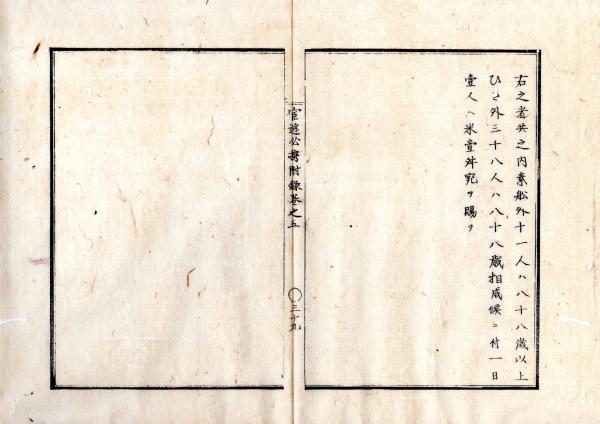 右之者共之内素船外十一人ハ八十八歳以上
ひさ外三十八人ハ八十八歳相成候ニ付一日
壹人ヘ米壹舛宛ヲ賜ヲ
官途必携附録巻之五
〇三十九